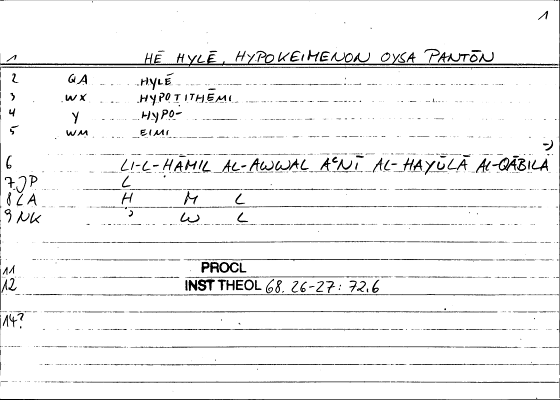 1
1 HĒ HYLĒ, HYPOKEIMENON OYSA PANTŌN
2 QA HYLĒ
3 WX HYPOTITHĒMI
4 Y HYPO-
5 WM EIMI
6 LI-L-ḤĀMIL AL-AWWAL AʿNĪ AL-HAYŪLĀ AL-QĀBILA
7 JP L
8 LA Ḥ M L
9 NK ʾ W L
11 PROCL
12 INST THEOL 68.26-27: 72.6
14?